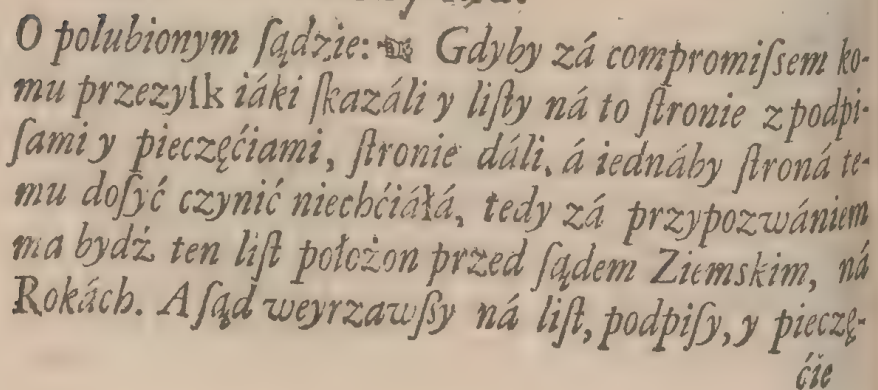 O polubionym ſądzie: ☞ Gdyby zá compromiſsem ko-
mu przezyſk iáki ſkazáli y liſty ná to ſtronie z podpi-
ſami y pieczęćiami, ſtronie dáli, á iednáby ſtroná te-
mu doſyć czynić niechćiáłá, tedy zá przypozwániem
ma bydź ten liſt położon przed ſądem Ziemskim, ná
Rokách. A ſąd weyrzawſſy ná liſt, podpiſy, y pieczę-
ćie